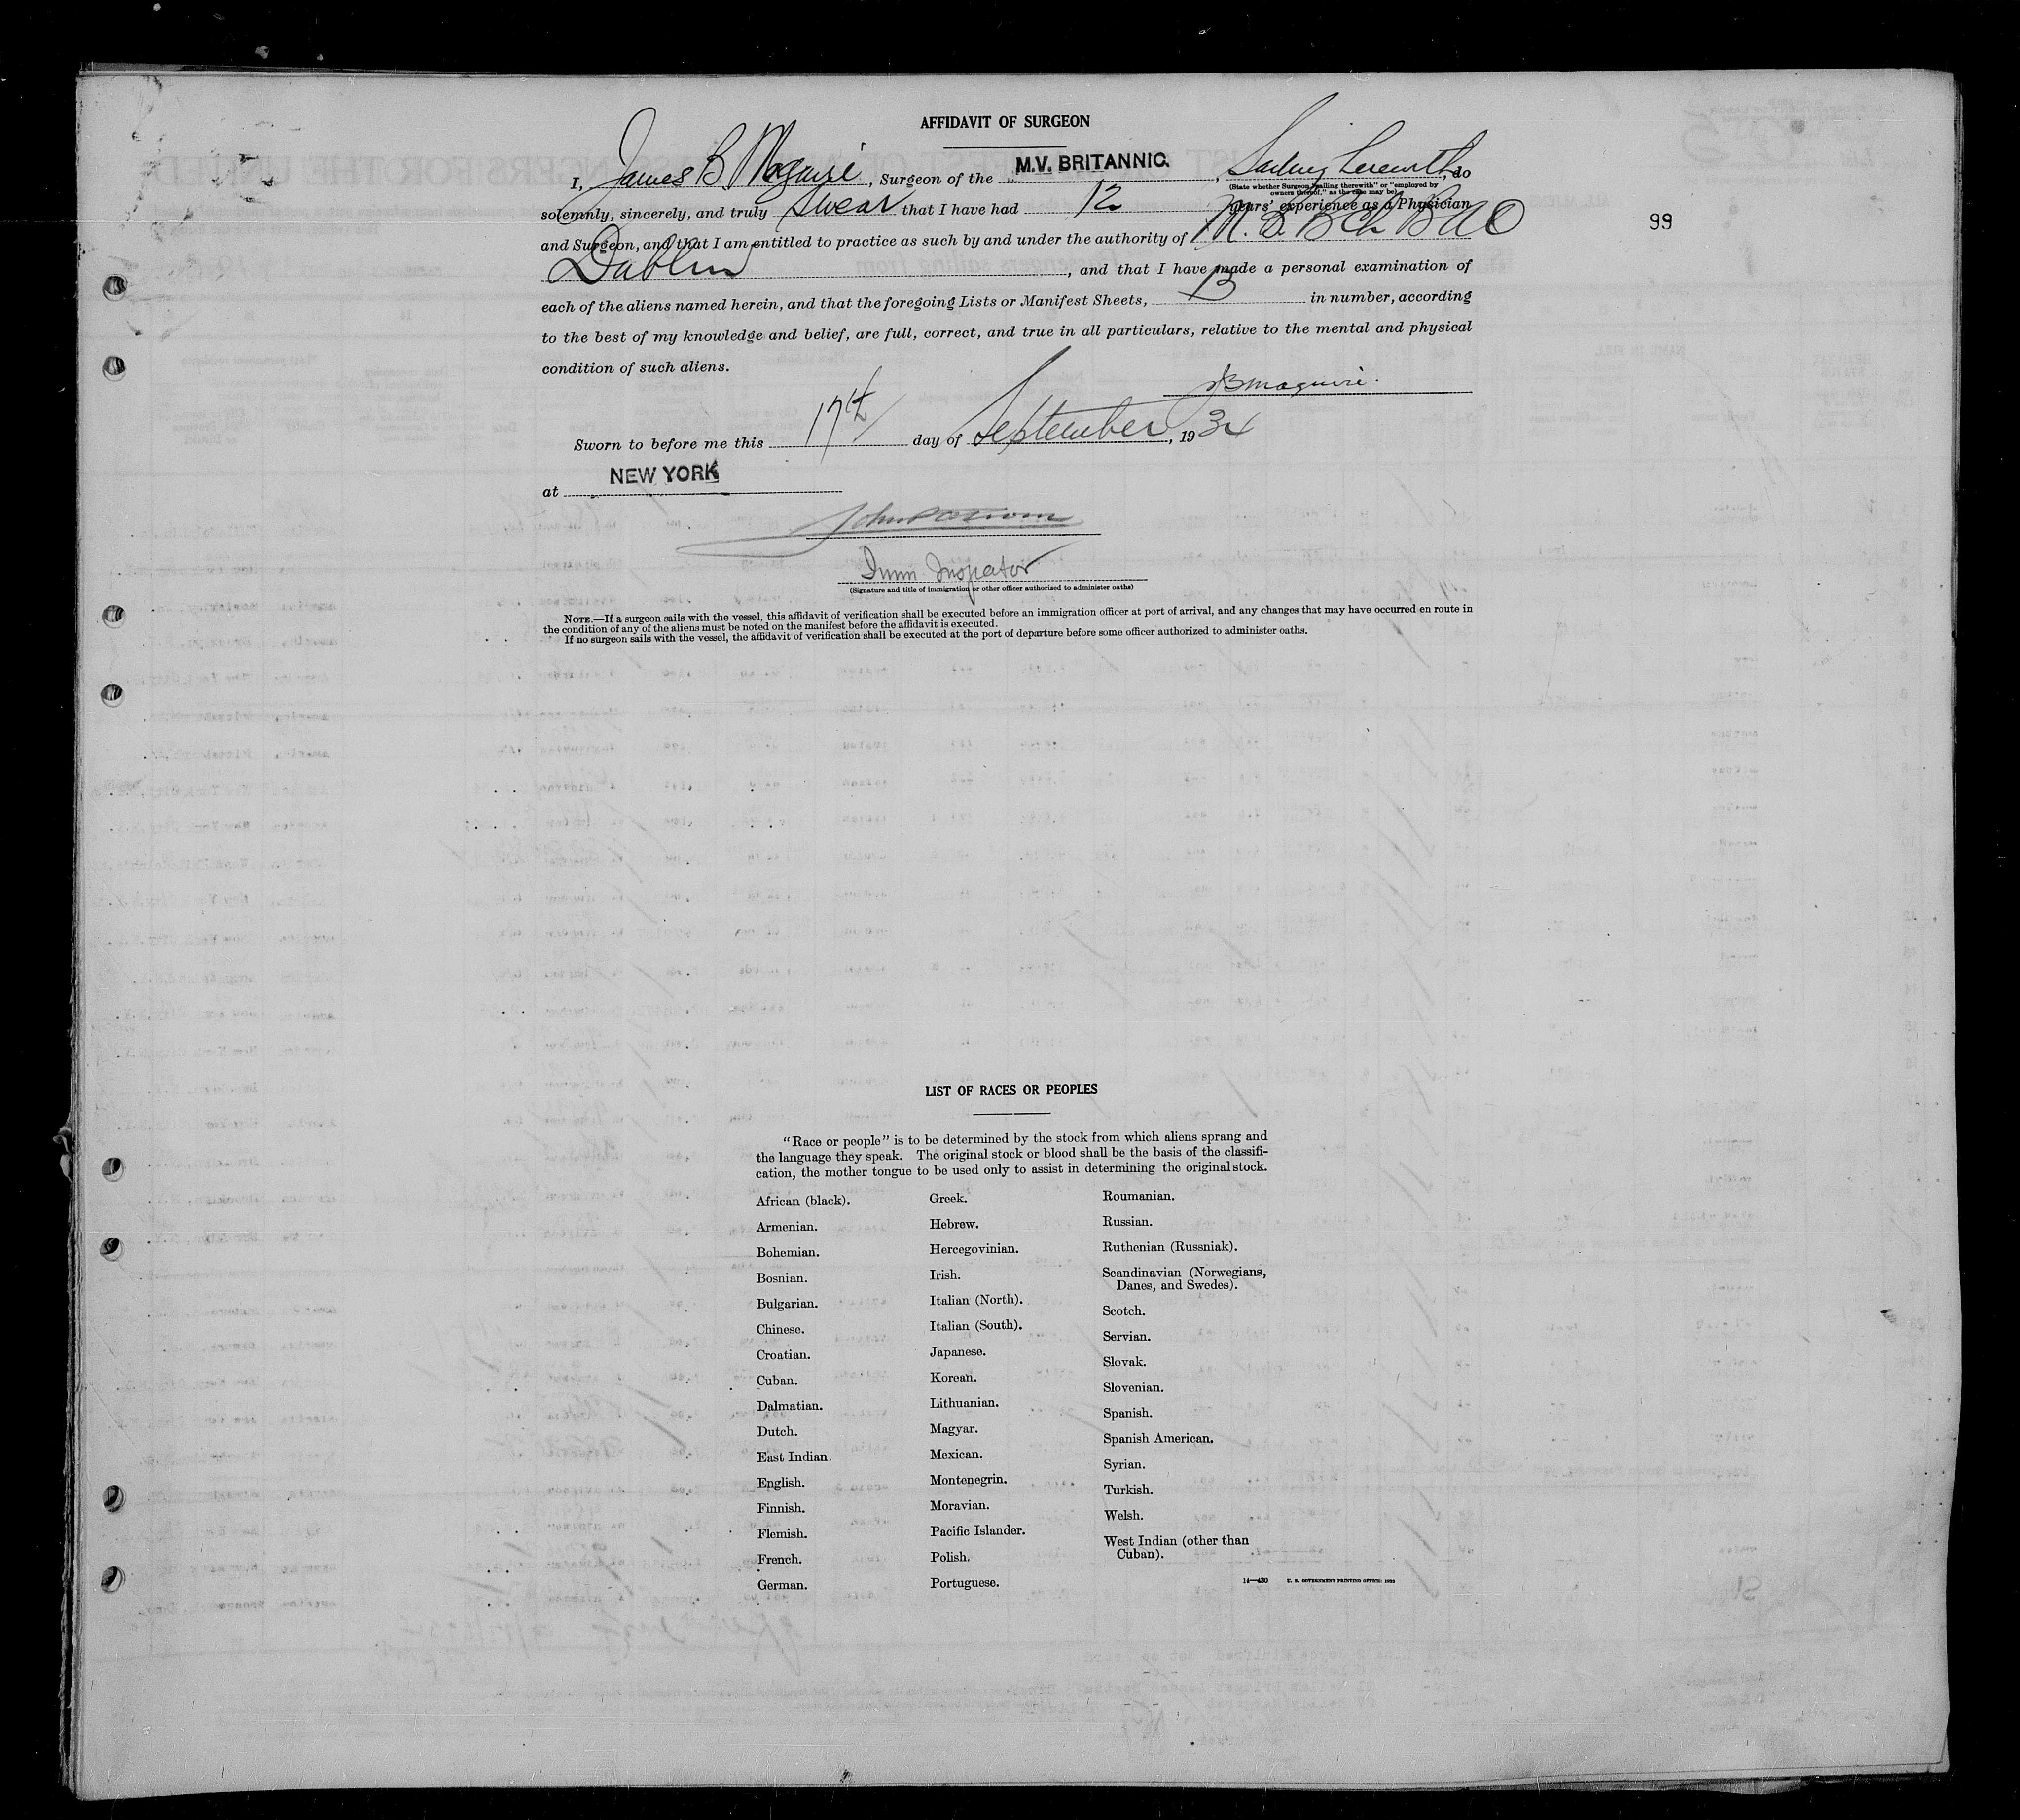 AFFIDAVIT OF SURGEON
I, James B. Maguire, Surgeon of the M.V. BRITANNIC, Sailing therewith, do
(State whether Surgeon "sailing therewith" or "employed by
owners thereof," as the case may be)
solemnly, sincerely, and truly swear that I have had 12 years' experience as a Physician
99
and Surgeon, and that I am entitled to practice as such by and under the authority of M. B. B Ch B A O
Dublin, and that I have made a personal examination of
each of the aliens named herein, and that the foregoing Lists or Manifest Sheets, 13 in number, according
to the best of my knowledge and belief, are full, correct, and true in all particulars, relative to the mental and physical
condition of such aliens.
JB Maguire.
Sworn to before me this 17th day of September, 1934
at NEW YORK
Imm Inspector
(Signature and title of immigration or other officer authorized to administer oaths)
NOTE.—If a surgeon sails with the vessel, this affidavit of verification shall be executed before an immigration officer at port of arrival, and any changes that may have occurred en route in
the condition of any of the aliens must be noted on the manifest before the affidavit is executed.
If no surgeon sails with the vessel, the affidavit of verification shall be executed at the port of departure before some officer authorized to administer oaths.
LIST OF RACES OR PEOPLES
"Race or people" is to be determined by the stock from which aliens sprang and
the language they speak. The original stock or blood shall be the basis of the classifi-
cation, the mother tongue to be used only to assist in determining the original stock.
African (black).
Armenian.
Bohemian.
Bosnian.
Bulgarian.
Chinese.
Croatian.
Cuban.
Dalmatian.
Dutch.
East Indian.
English.
Finnish.
Flemish.
French.
German.
Greek.
Hebrew.
Hercegovinian.
Irish.
Italian (North).
Italian (South).
Japanese.
Korean.
Lithuanian.
Magyar.
Mexican.
Montenegrin.
Moravian.
Pacific Islander.
Polish.
Portuguese.
Roumanian.
Russian.
Ruthenian (Russniak).
Scandinavian (Norwegians,
Danes, and Swedes).
Scotch.
Servian.
Slovak.
Slovenian.
Spanish.
Spanish American.
Syrian.
Turkish.
Welsh.
West Indian (other than
Cuban).
14—430 U. S. GOVERNMENT PRINTING OFFICE: 1932